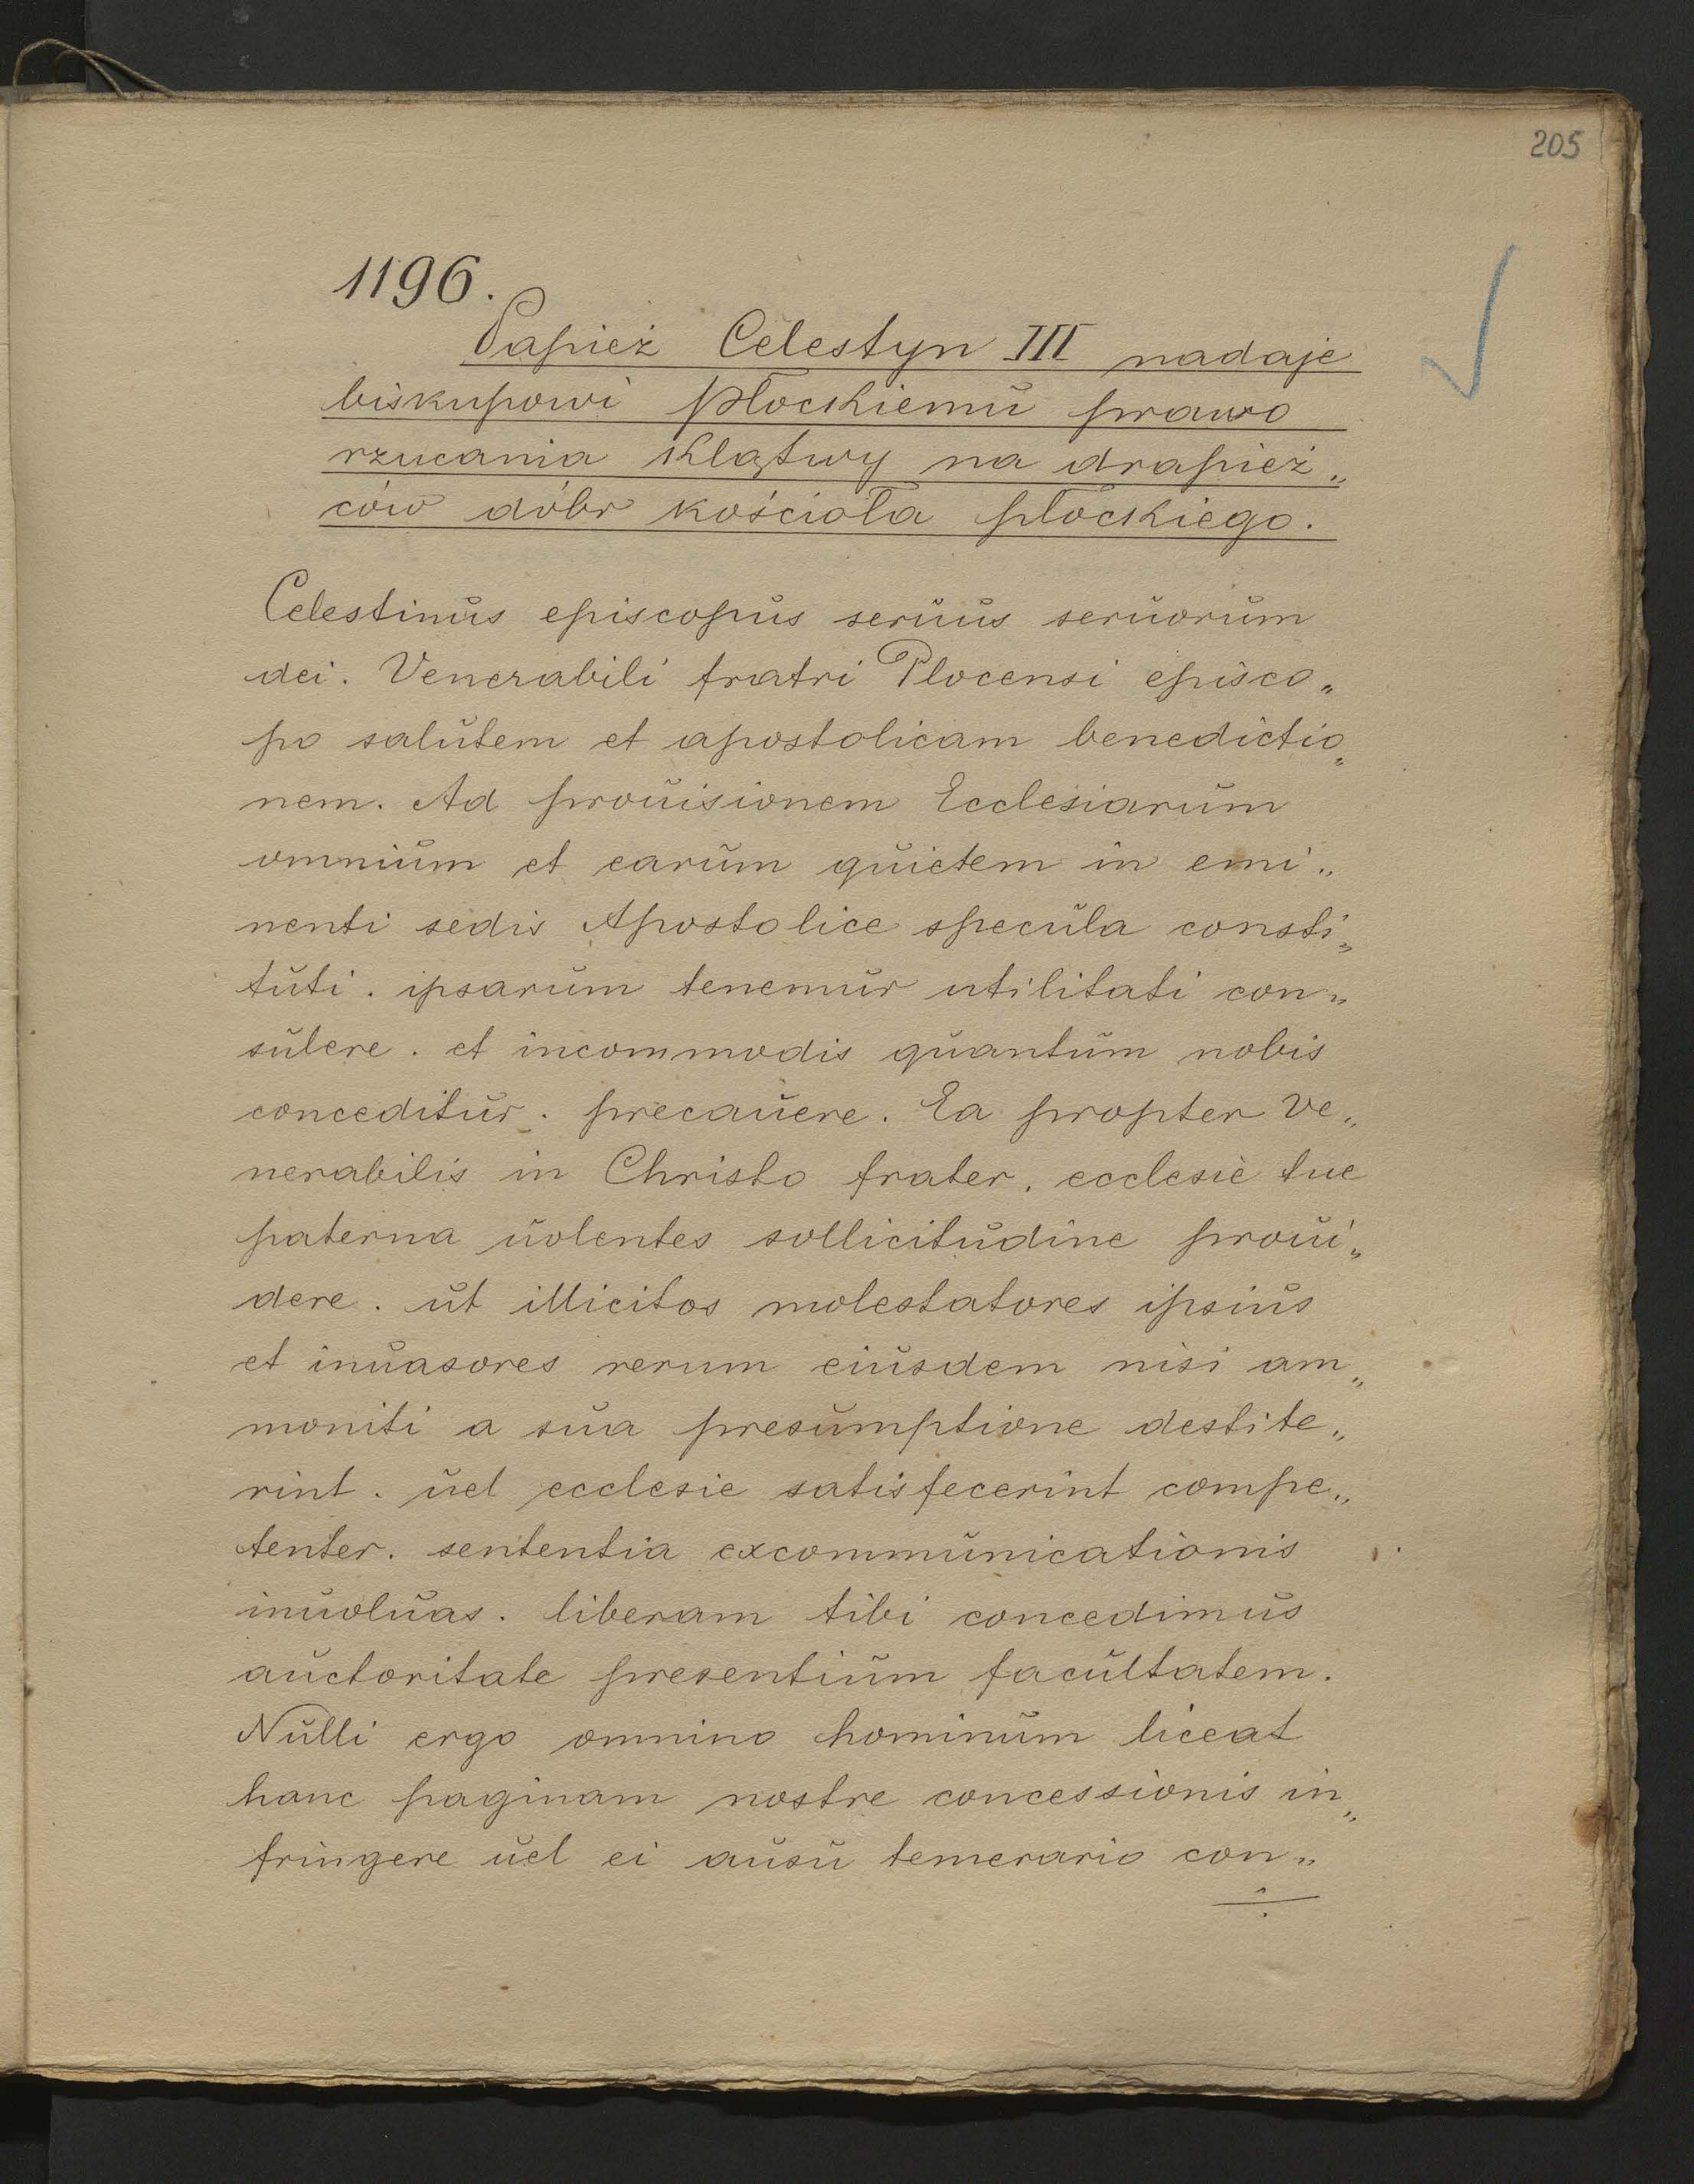 205
1196.
Papież Celestyn III nadaje
biskupowi płockiemu prawo
rzucania klątwy na drapież„
ców dóbr kościoła płockiego.
Celestinus episcopus seruus seruorum
dei. Venerabili fratri Plocensi episco„
po salutem et apostolicam benedictio„
nem. Ad prouisionem Ecclesiarum
omnium et earum quietem in emi„
nenti sedis Apostolice specula consti„
tuti. ipsarum tenemur utilitati con„
sulere. et incommodis quantum nobis
conceditur. precauere. Ea propter Ve„
nerabilis in Christo frater. ecclesie tue
paterna uolentes sollicitudine proui„
dere. ut illicitos molestatores ipsius
et inuasores rerum eiusdem nisi am„
moniti a sua presumptione destite„
rint. uel ecclesie satisfecerint compe„
tenter. sententia excommunicationis
inuoluas. liberam tibi concedimus
auctoritate presentium facultatem.
Nulli ergo omnino hominum liceat
hanc paginam nostre concessionis in„
fringere uel ei ausu temerario con„